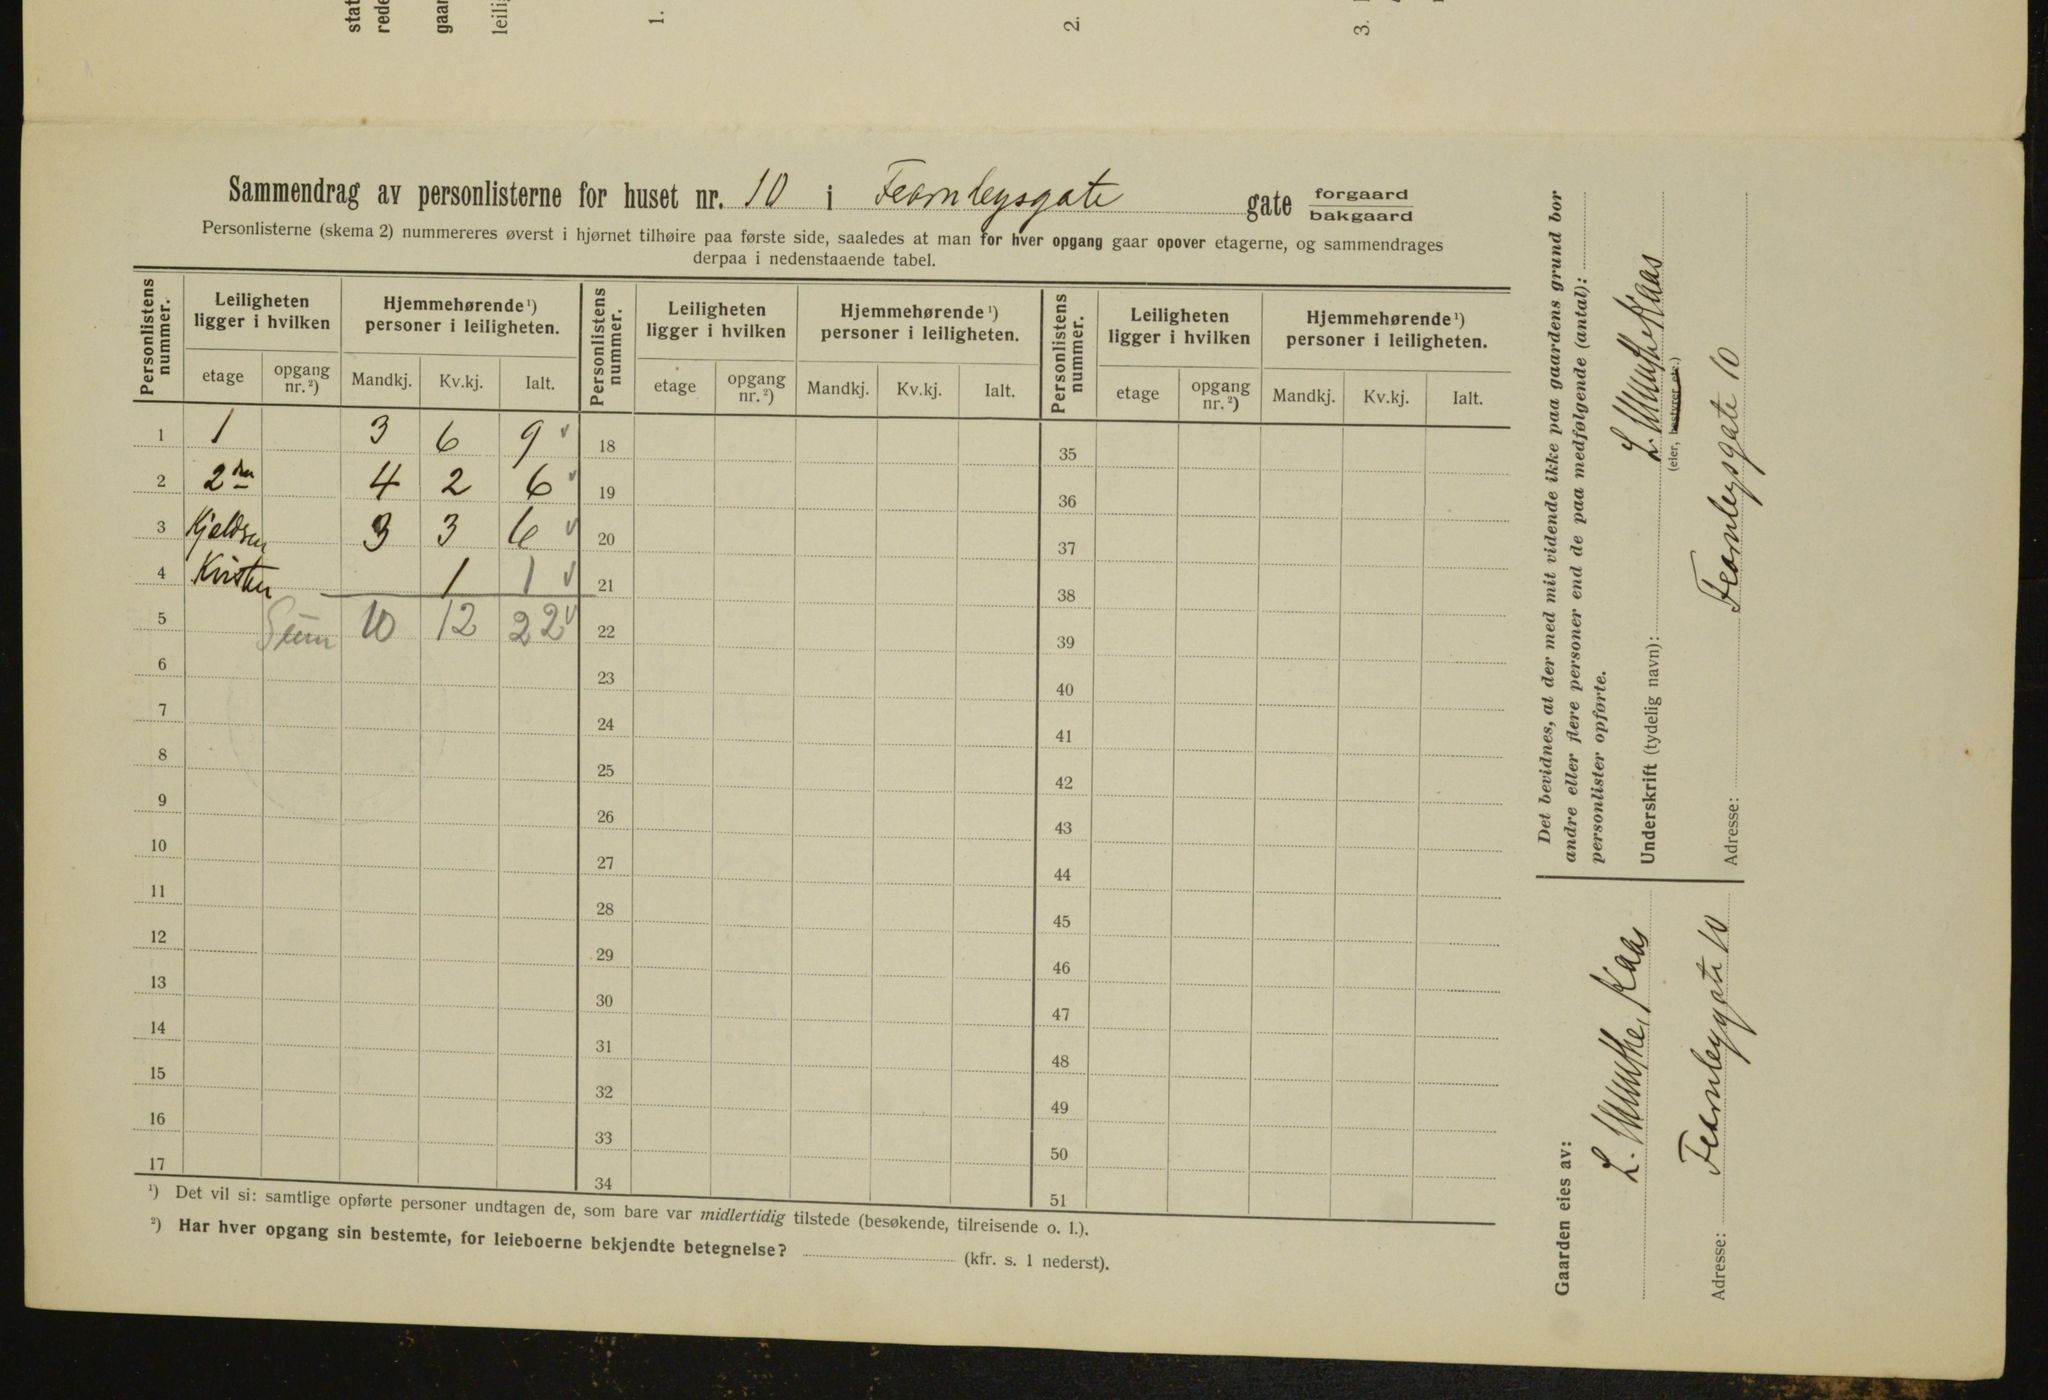 stat
rede
gaar
leili
1.
2.
3.
Sammendrag av personlisterne for huset nr. 10 i Fearnleysgate gate forgaard
bakgaard
Personlisterne (skema 2) nummereres øverst i hjørnet tilhøire paa første side, saaledes at man for hver opgang gaar opover etagerne, og sammendrages
derpaa i nedenstaaende tabel.
Personlistens nummer. Leiligheten ligger i hvilken Hjemmehørende¹) personer i leiligheten. Personlistens nummer. Leiligheten ligger i hvilken Hjemmehørende¹) personer i leiligheten. Personlistens nummer. Leiligheten ligger i hvilken Hjemmehørende¹) personer i leiligheten.
etage opgang nr.²) Mandkj. Kv.kj. Ialt. etage opgang nr.²) Mandkj. Kv.kj. Ialt. etage opgang nr.²) Mandkj. Kv.kj. Ialt.
1 1 3 6 9 √ 18 35
2 2den 4 2 6 √ 19 36
3 Kjeldsen 3 3 6 √ 20 37
4 Kvisten 1 1 √ 21 38
5 Sum 10 12 22 √ 22 39
6 23 40
7 24 41
8 25 42
9 26 43
10 27 44
11 28 45
12 29 46
13 30 47
14 31 48
15 32 49
16 33 50
17 34 51
¹) Det vil si: samtlige opførte personer undtagen de, som bare var midlertidig tilstede (besøkende, tilreisende o. l.).
²) Har hver opgang sin bestemte, for leieboerne bekjendte betegnelse? (kfr. s. 1 nederst).
Det bevidnes, at der med mit vidende ikke paa gaardens grund bor
andre eller flere personer end de paa medfølgende (antal):
personlister opførte.
Underskrift (tydelig navn): L. Munthe Kaas
(eier, bestyrer etc.)
Adresse: Fearnleysgate 10
Gaarden eies av:
L. Munthe Kaas
Adresse: Fearnleygate 10